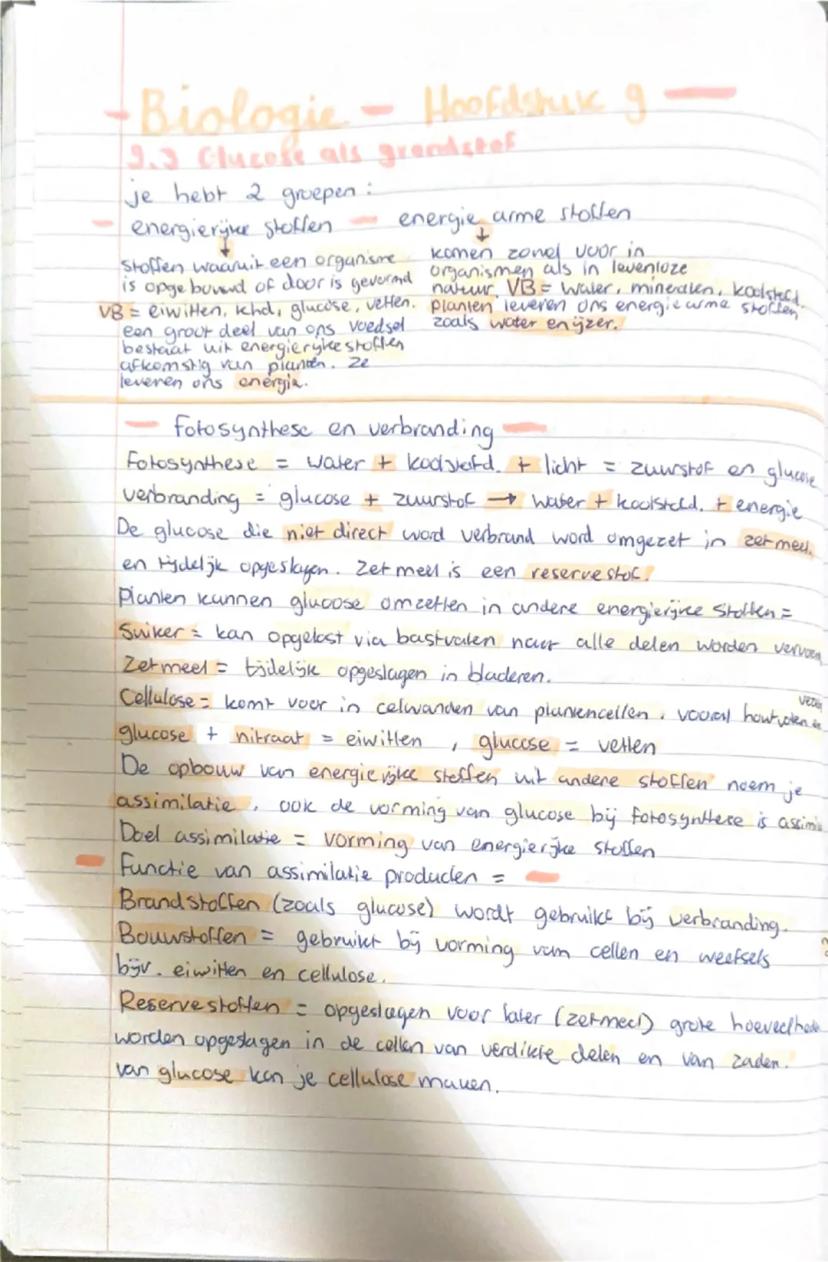 - Biologie - Hoofdstuk 9 -
9.3 Glucose als grondstof
je hebt 2 groepen:
- energierijke stoffen - energie arme stoffen
stoffen waaruit een organisme
is opgebouwd of door is gevormd
VB = eiwitten, khd, glucose, vetten.
een groot deel van ons voedsel
bestaat uit energierijke stoffen
afkomstig van planten. Ze
leveren ons energie.
komen zowel voor in
organismen als in levenloze
natuur. VB = Water, mineralen, koolstofd.
planten leveren ons energiearme stoffen
zoals water en ijzer.
- Fotosynthese en verbranding -
Fotosynthese = water + koolstofd. + licht = zuurstof en glucose
verbranding = glucose + zuurstof → water + koolstofd. + energie
De glucose die niet direct word verbrand word omgezet in zetmeel.
en tijdelijk opgeslagen. Zetmeel is een reservestof.
Planten kunnen glucose omzetten in andere energierijke stoffen =
Suiker = kan opgelost via bastvaten naar alle delen worden vervoerd
Zetmeel = tijdelijk opgeslagen in bladeren.
Cellulose = komt voor in celwanden van plantencellen. vooral houtvaten en
glucose + nitraat = eiwitten, glucose = vetten
De opbouw van energierijke stoffen uit andere stoffen noem je
assimilatie. ook de vorming van glucose bij fotosynthese is assimi
Doel assimilatie = vorming van energierijke stoffen
- Functie van assimilatie producten = -
Brandstoffen (zoals glucose) wordt gebruikt bij verbranding.
Bouwstoffen = gebruikt bij vorming van cellen en weefsels
bijv. eiwitten en cellulose.
Reservestoffen = opgeslagen voor later (zetmeel) grote hoeveelhede
worden opgeslagen in de cellen van verdikte delen en van zaden.
van glucose kan je cellulose maken.